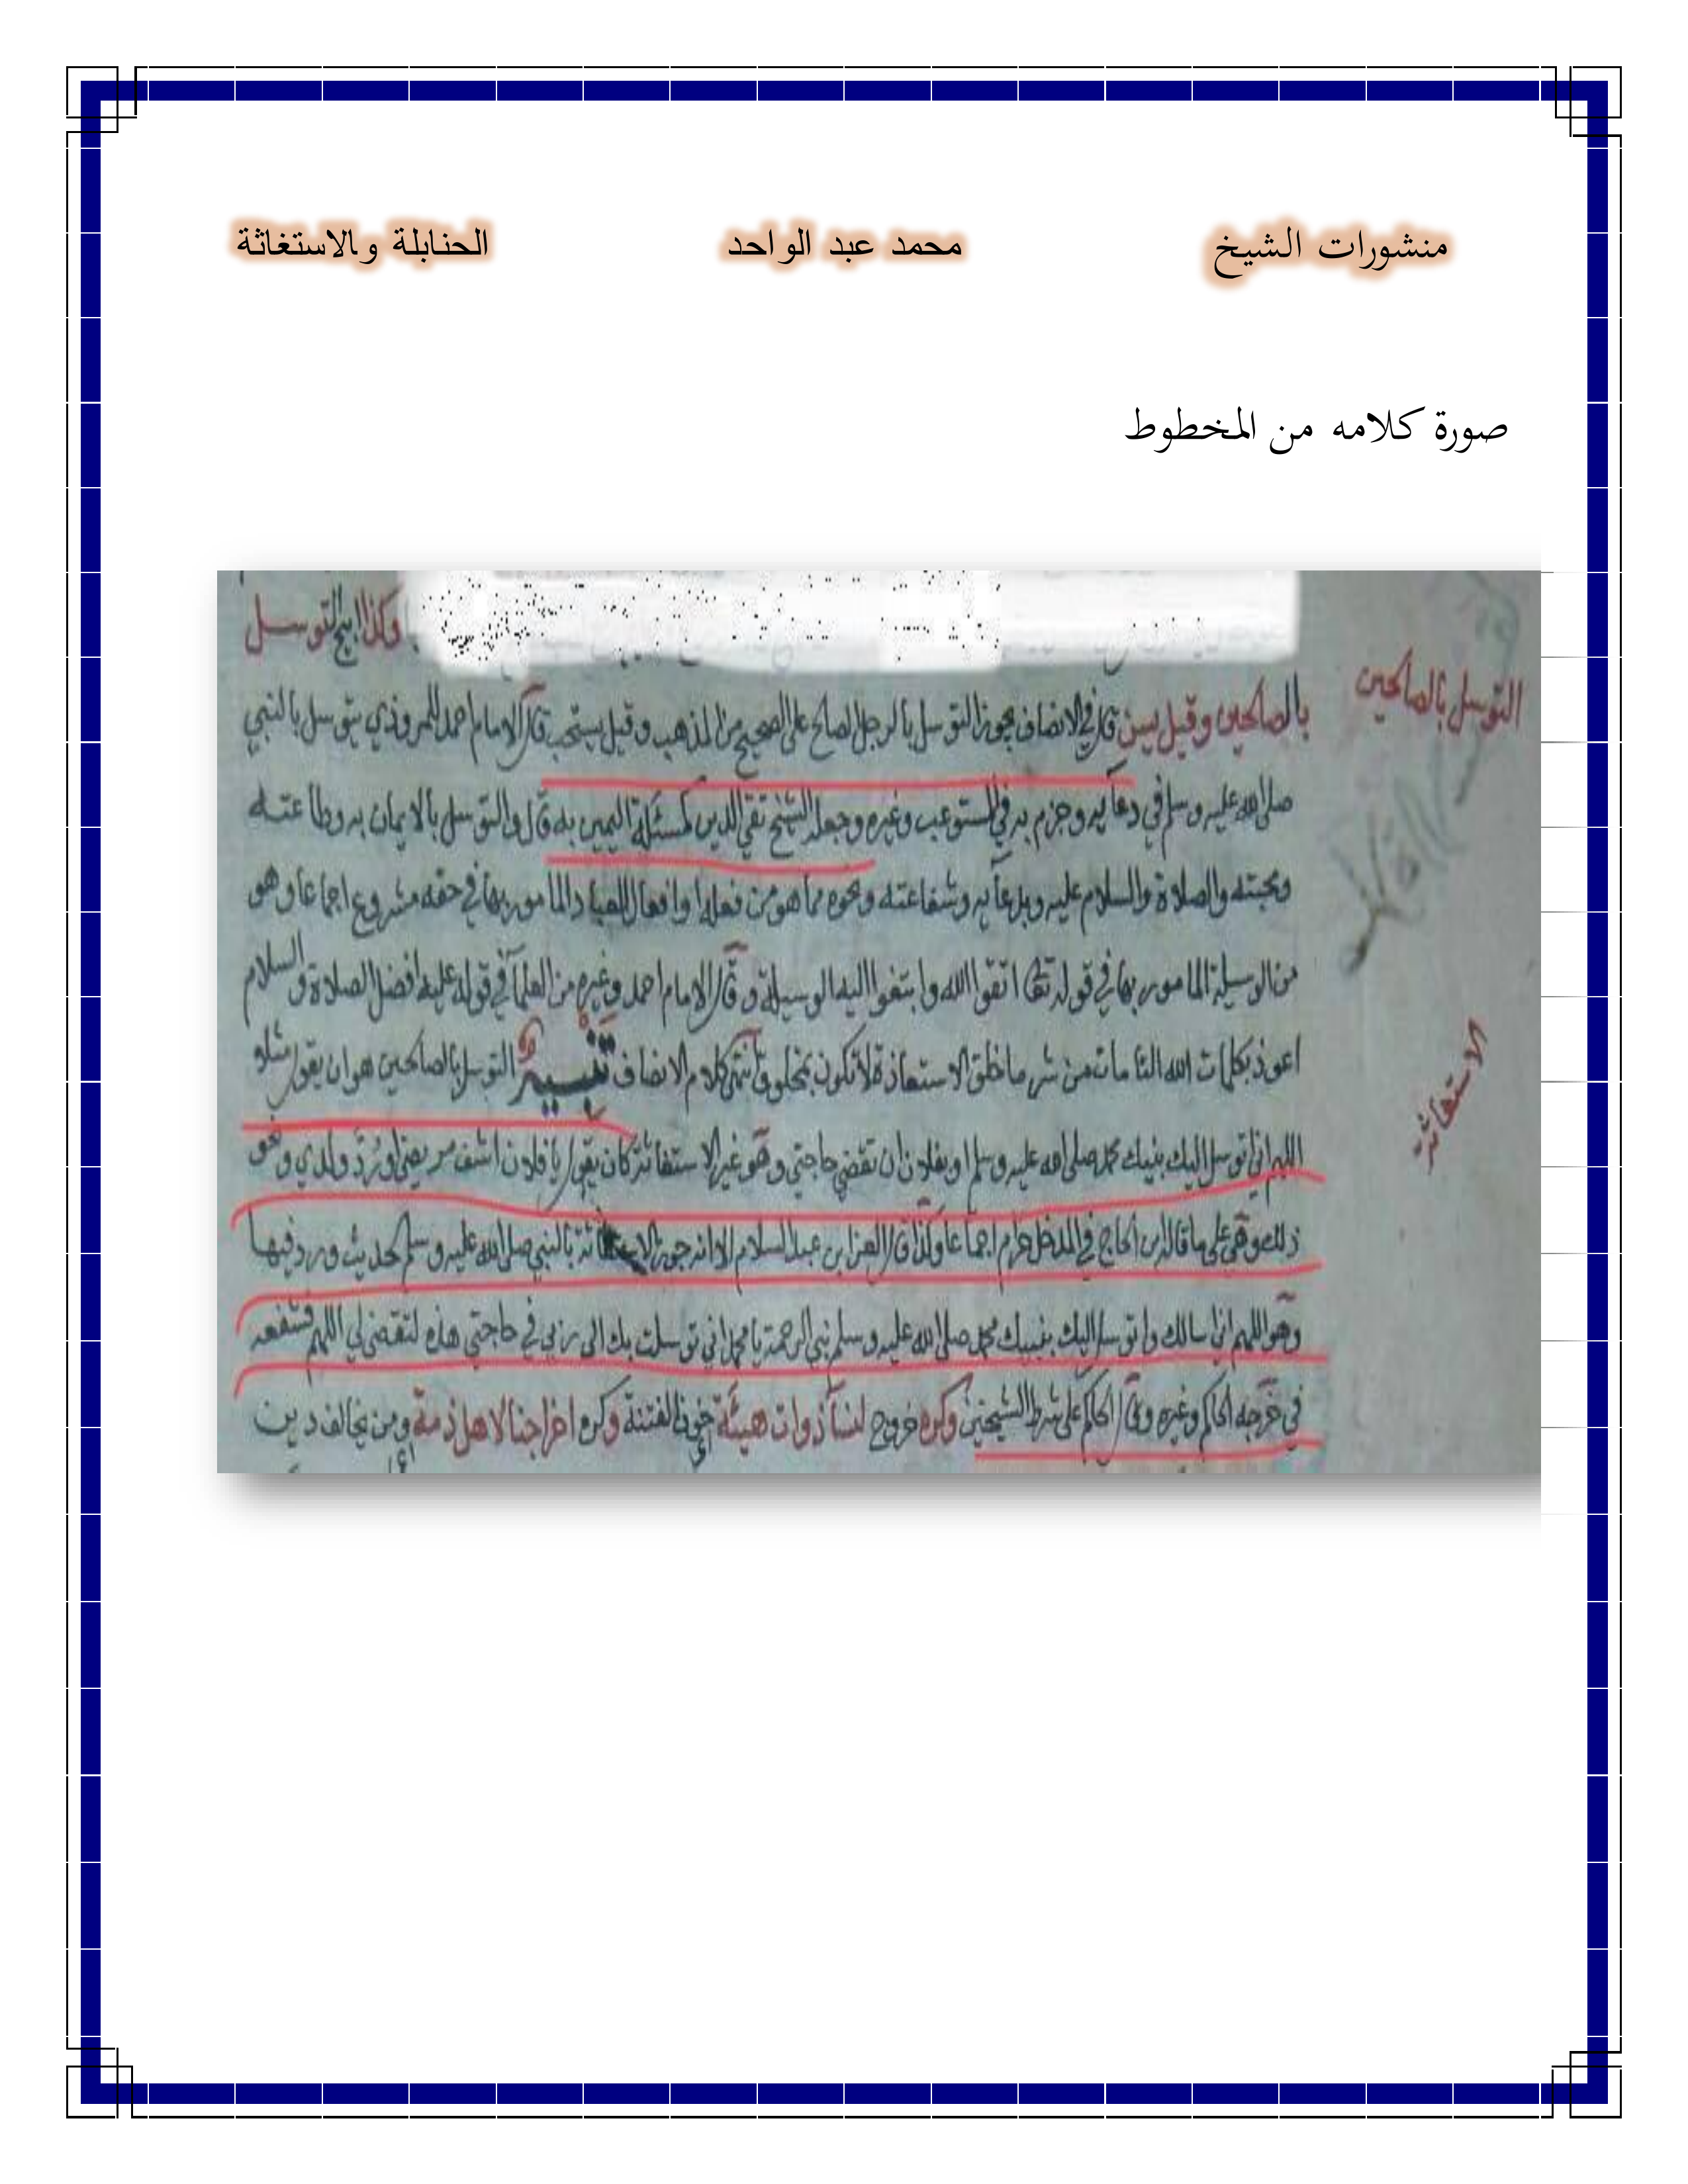 منشورات الشيخ محمد عبد الواحد الحنابلة والاستغاثة
صورة كلامه من المخطوط
وكذا ابيح التوسل
التوسل بالصالحين
بالصالحين وقيل يسن قال في الانصاف يجوز التوسل بالرجل الصالح على الصحيح من المذهب وقيل يستحب قال الامام احمد للمروذي يتوسل بالنبي
صلى الله عليه وسلم في دعائه وجزم به في المستوعب وغيره وجعله الشيخ تقي الدين كمسئلة اليمين به قال والتوسل بالايمان به وطاعته
ومحبته والصلاة والسلام عليه وبدعائه وشفاعته ونحوه مما هو من فعله او افعال العباد المامور بها في حقه مشروع اجماعا وهو
من الوسيلة المامور بها في قوله تعالى اتقوا الله وابتغوا اليه الوسيلة وقال الامام احمد وغيره من العلماء في قوله عليه افضل الصلاة والسلام
اعوذ بكلمات الله التامات من شر ما خلق الاستعاذة لا تكون بمخلوق انتهى كلام الانصاف تنبيه التوسل بالصالحين هو ان يقول مثلا
الاستغاثة
اللهم اني اتوسل اليك بنبيك محمد صلى الله عليه وسلم او بفلان ان تقضي حاجتي وهو غير الاستغاثة كان يقول يا فلان اشف مريضي او رد ولدي ونحو
ذلك وهي على ما قال ابن الحاج في المدخل حرام اجماعا وكذا قال العز ابن عبد السلام الا انه جوز الاستغاثة بالنبي صلى الله عليه وسلم لحديث ورد فيها
وهو اللهم اني اسالك واتوسل اليك بنبيك محمد صلى الله عليه وسلم نبي الرحمة يا محمد اني توسلت بك الى ربي في حاجتي هذه لتقضى لي اللهم فشفعه
في خرجه الحاكم وغيره وقال الحاكم على شرط الشيخين وكره خروج لنساء ذوات هيئة خوف الفتنة وكره اخراجنا لاهل ذمة ومن يخالف دين